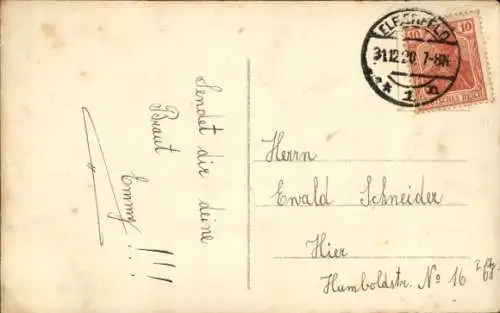 Sendet dir deine
Braut
Emmy!!!
ELBERFELD
31.12.20. 7-8N.
* 1 n
10 10
DEUTSCHES REICH
Herrn
Ewald Schneider
Hier
Humboldstr. No 16